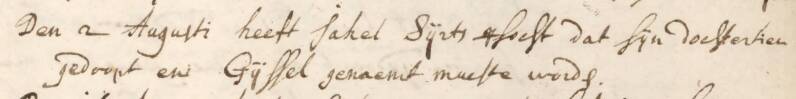 Den 2 Augusti heeft Jakel Sÿrts versocht dat sÿn dochterken
gedoopt en Gÿssel genaemt mueste word.